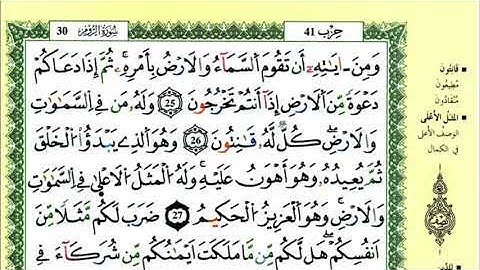 حزب 41
سورة الروم 30
وَمِنَ ايَٰتِهِۦٓ أَن تَقُومَ السَّمَآءُ وَالَارْضُ بِأَمْرِهِۦۖ ثُمَّ إِذَا دَعَاكُمْ
دَعْوَةً مِّنَ الَارْضِ إِذَآ أَنتُمْ تَخْرُجُونَۖ 25 وَلَهُۥ مَن فِى السَّمَٰوَٰتِ
وَالَارْضِۖ كُلٌّ لَّهُۥ قَٰنِتُونَۖ 26 وَهُوَ الَّذِى يَبْدَؤُاْ الْخَلْقَ
ثُمَّ يُعِيدُهُۥ وَهُوَ أَهْوَنُ عَلَيْهِۖ وَلَهُ الْمَثَلُ الَاعْلَىٰ فِى السَّمَٰوَٰتِ
وَالَارْضِۖ وَهُوَ الْعَزِيزُ الْحَكِيمُۖ 27 ضَرَبَ لَكُم مَّثَلًا مِّنَ
اَنفُسِكُمْۖ هَل لَّكُم مِّن مَّا مَلَكَتَ اَيْمَٰنُكُم مِّن شُرَكَآءَ فِى
قانتون
مطيعون
منقادون
المثل الأعلى
الوصف الأعلى
في الكمال